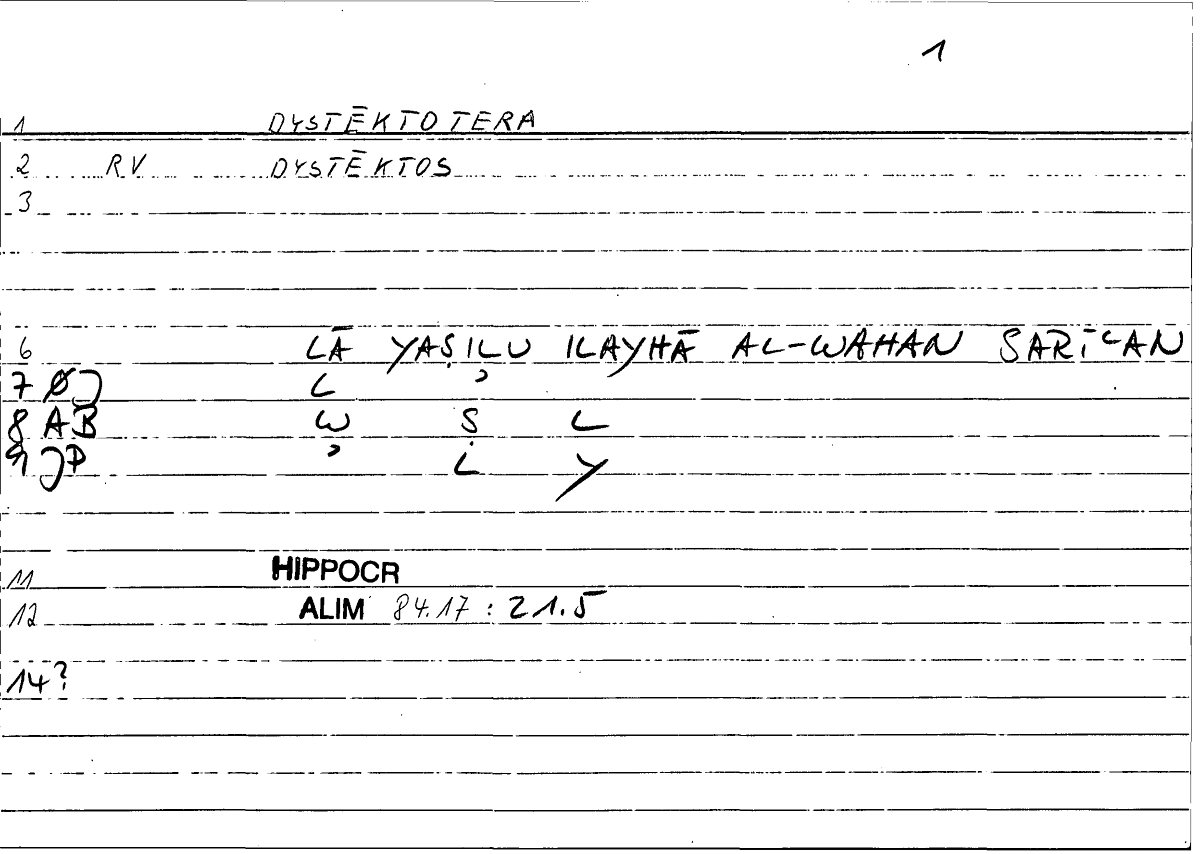 1
1 DYSTĒKTOTERA
2 RV DYSTĒKTOS
3
6 LĀ YAṢILU ILAYHĀ AL-WAHAN SARĪʿAN
7 ØJ L ʾ
8 AB W S L
9 JP ʾ L Y
11 HIPPOCR
12 ALIM 84.17 : 21.5
14?